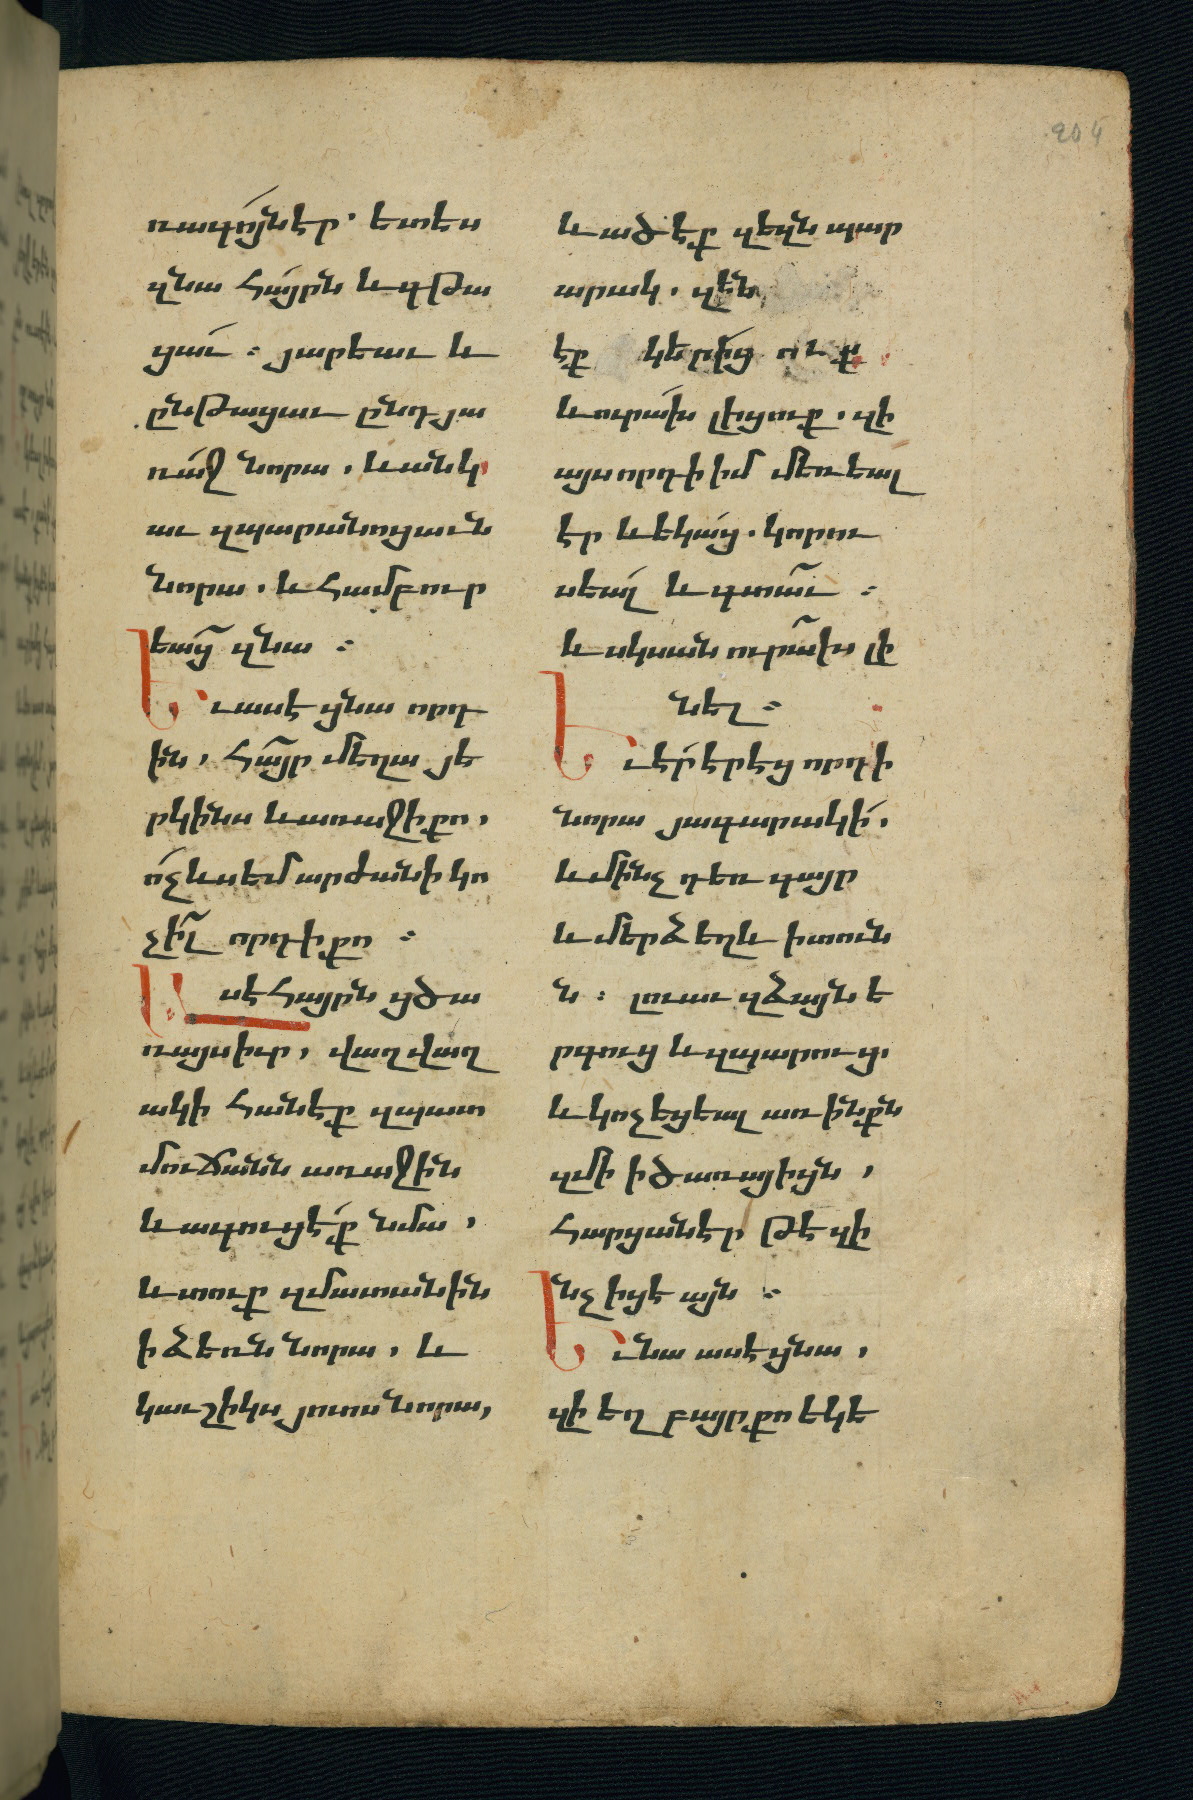 ռագո́յներ. ետես
զնա հա́յրն ևգթա
ցաւ́ ։ յարեաւ և
ընթացաւ ընդ յա
ռա́ջ նորա, ևանկ
աւ զպարանոցաւն
նորա, և համբուր
եաց՜ զնա ։
Եւասէ ցնա որդ
ին, հա՜յր մեղա յե
րկինս ևառաջի քո,
ո́չ ևսեմ արժանի կո
չի՜լ որդի քո ։
Ասէ հայրն ցծա
ռայսիւր, վաղվաղ
ակի հանէք զպատ
մուճանն առաջին
ևագուցէ́ք նմա,
ևտուք զմատանին
ի ձեռն նորա, և
կաւշիկս յոտս նորա,
ևածէք զեզն պար
արակ. զէն
էք կերի́ց ուք
ևուրա́խ լիցուք. զի
այսորդի իմ մեռեալ
էր ևեկա́ց. կորու
սեա́լ և գտա՜ւ ։
ևսկսան ուրա՜խ լի
նել ։
Եւէ́ր երէց որդի
նորա յագարակի́,
ևմինչ դեռ գայր
ևմերձեղև ի տուն
ն ։ լուաւ զձայն ե
րգուց ևզպարուց.
ևկոչեցեալ առ ինքն
զմի ի ծառայիցն,
հարցաներ թէ զի
նչ իցէ այն ։
Եւնա ասէ ցնա,
զի եղբայր քո եկե
204